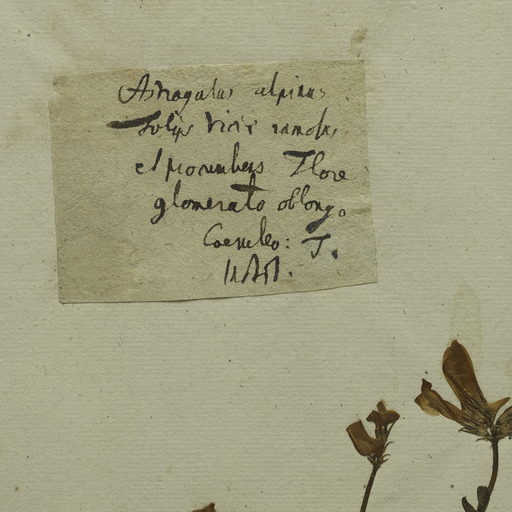 Astragalus alpinus
foliis Viciæ ramosus
et procumbens Flore
glomerato oblongo
Coeruleo: T.